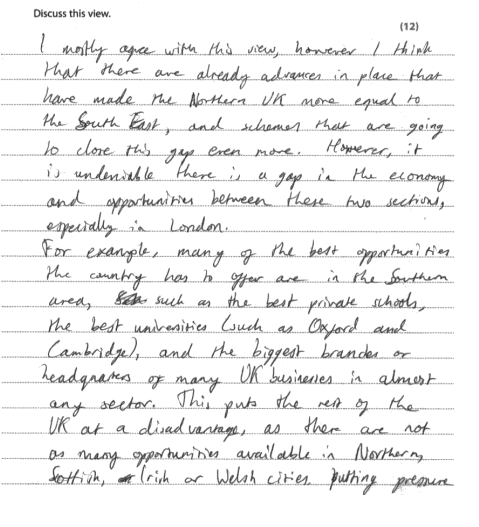 Discuss this view.
(12)
I mostly agree with this view, however I think
that there are already advances in place that
have made the Northern UK more equal to
the South East, and schemes that are going
to close this gap even more. However, it
is undeniable there is a gap in the economy
and opportunities between these two sections,
especially in London.
For example, many of the best opportunities
the country has to offer are in the Southern
area, such as the best private schools,
the best universities (such as Oxford and
Cambridge), and the biggest branches or
headquarters of many UK businesses in almost
any sector. This puts the rest of the
UK at a disadvantage, as there are not
as many opportunities available in Northern,
Scottish, Irish or Welsh cities, putting pressure